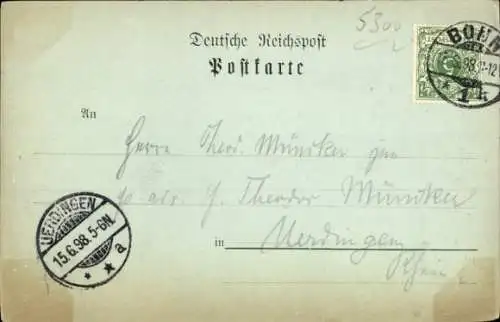 5300
Deutsche Reichspost
Postkarte
BONN
98. 11-12
1 k
An
Herrn Theod. Münker jun
p. adr. J. Theodor Münker
in Uerdingen
Rhein
UERDINGEN
15.6.98. 5-6N.
* * a